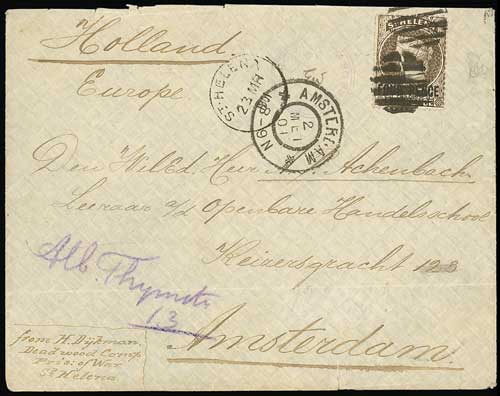 n/ Holland
Europe
ST. HELENA
23 MR
AMSTERDAM
2
MEI
01
8-9N
ST. HELENA
PENCE
Den WelEd. Heer Achenbach
Leeraar a/d Openbare Handelsschool
Keizersgracht 123
Alb. Thymstr
13
Amsterdam
from H. Dijkman,
Deadwood Camp
Pris. of War
St Helena